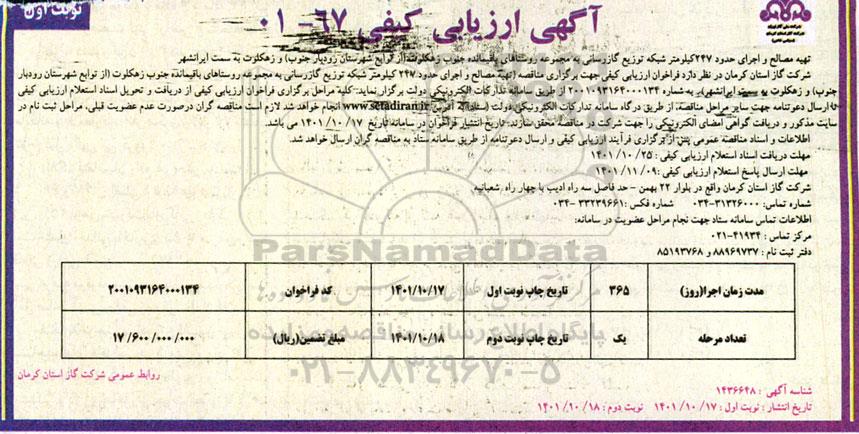 نوبت اول
شرکت ملی گاز ایران
آگهی ارزیابی کیفی ۶۷- ۰۱
تهیه مصالح و اجرای حدود ۲۴۷کیلومتر شبکه توزیع گازرسانی به مجموعه روستاهای باقیمانده جنوب زهکلوت (از توابع شهرستان رودبار جنوب) و زهکلوت به سمت ایرانشهر
شرکت گاز استان کرمان در نظر دارد فراخوان ارزیابی کیفی جهت برگزاری مناقصه (تهیه مصالح و اجرای حدود ۲۴۷ کیلومتر شبکه توزیع گازرسانی به مجموعه روستاهای باقیمانده جنوب زهکلوت (از توابع شهرستان رودبار
جنوب) و زهکلوت به سمت ایرانشهر). به شماره ۲۰۰۱۰۹۳۱۶۴۰۰۰۱۳۴ از طریق سامانه تدارکات الکترونیکی دولت برگزار نماید. کلیه مراحل برگزاری فراخوان ارزیابی کیفی از دریافت و تحویل اسناد استعلام ارزیابی کیفی
تا ارسال دعوتنامه جهت سایر مراحل مناقصه، از طریق درگاه سامانه تدارکات الکترونیکی دولت (ستاد) به آدرس www.setadiran.ir انجام خواهد شد. لازم است مناقصه گران درصورت عدم عضویت قبلی، مراحل ثبت نام در
سایت مذکور و دریافت گواهی امضای الکترونیکی را جهت شرکت در مناقصه محقق سازند. تاریخ انتشار فراخوان در سامانه تاریخ ۱۴۰۱/۱۰/۱۷ می باشد.
اطلاعات و اسناد مناقصه عمومی پس از برگزاری فرآیند ارزیابی کیفی و ارسال دعوتنامه از طریق سامانه ستاد به مناقصه گران ارسال خواهد شد.
مهلت دریافت اسناد استعلام ارزیابی کیفی : ۱۴۰۱/۱۰/۲۵
مهلت ارسال پاسخ استعلام ارزیابی کیفی : ۱۴۰۱/۱۱/۰۹
شرکت گاز استان کرمان واقع در بلوار ۲۲ بهمن - حد فاصل سه راه ادیب با چهار راه شعبانیه.
شماره تماس: ۳۱۳۲۶۰۰۰-۰۳۴ شماره فکس :۳۳۲۳۹۶۶۱-۰۳۴
اطلاعات تماس سامانه ستاد جهت نجام مراحل عضویت در سامانه:
مرکز تماس : ۴۱۹۳۴-۰۲۱
دفتر ثبت نام : ۸۸۹۶۹۷۳۷ و ۸۵۱۹۳۷۶۸
ParsNamadData
مدت زمان اجرا(روز) ۳۶۵ تاریخ چاپ نوبت اول ۱۴۰۱/۱۰/۱۷ کد فراخوان ۲۰۰۱۰۹۳۱۶۴۰۰۰۱۳۴
تعداد مرحله یک تاریخ چاپ نوبت دوم ۱۴۰۱/۱۰/۱۸ مبلغ تضمین(ریال) ۱۷/۶۰۰/۰۰۰/۰۰۰
پایگاه اطلاع رسانی مناقصه و مزایده
۰۲۱-۸۸۳۴۹۶۷۰-۵
روابط عمومی شرکت گاز استان کرمان
شناسه آگهی : ۱۴۳۶۶۴۸
تاریخ انتشار : نوبت اول : ۱۴۰۱/۱۰/۱۷ نوبت دوم : ۱۴۰۱/۱۰/۱۸